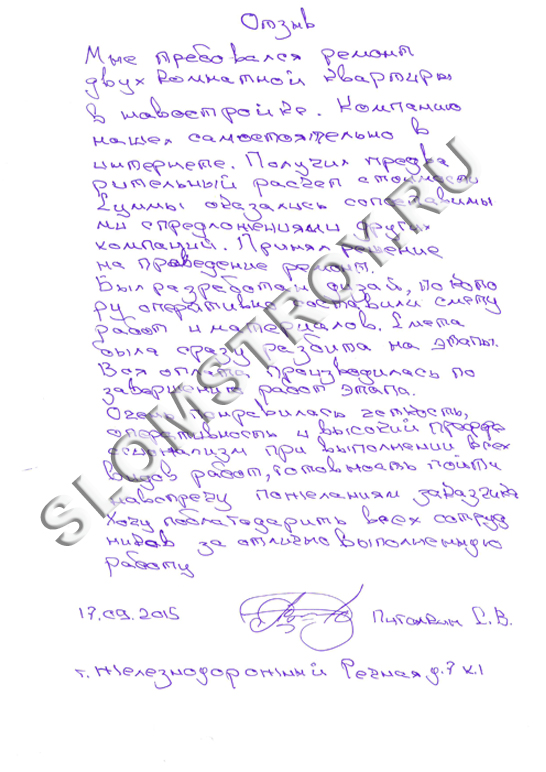 Отзыв
Мне требовался ремонт
двух комнатной квартиры
в навостройке. Компанию
нашел самостоятельно в
интернете. Получил предва
рительный расчет стоимости
Суммы оказались сопоставимы
ми спредложениями других
компаций. Принял решение
на проведение ремонт.
Был разработан дизай, по кото
ру оперативно составили смету
работ и материалов. Смета
была сразу разбита на этапы.
Вся оплата производилась по
завершению работ этапа.
Очень понравилась четкость,
оперативность и высокий профе
ссионализм при выполнении всех
видов работ, готовность пойти
навстречу пожеланиям заказчика
Хочу поблагодарить всех сотруд
ников за отлично выполненную
работу
17.09.2015 С.В.
г. Железнодорожный Речная д.7 к.1
SLOMSTROY.RU